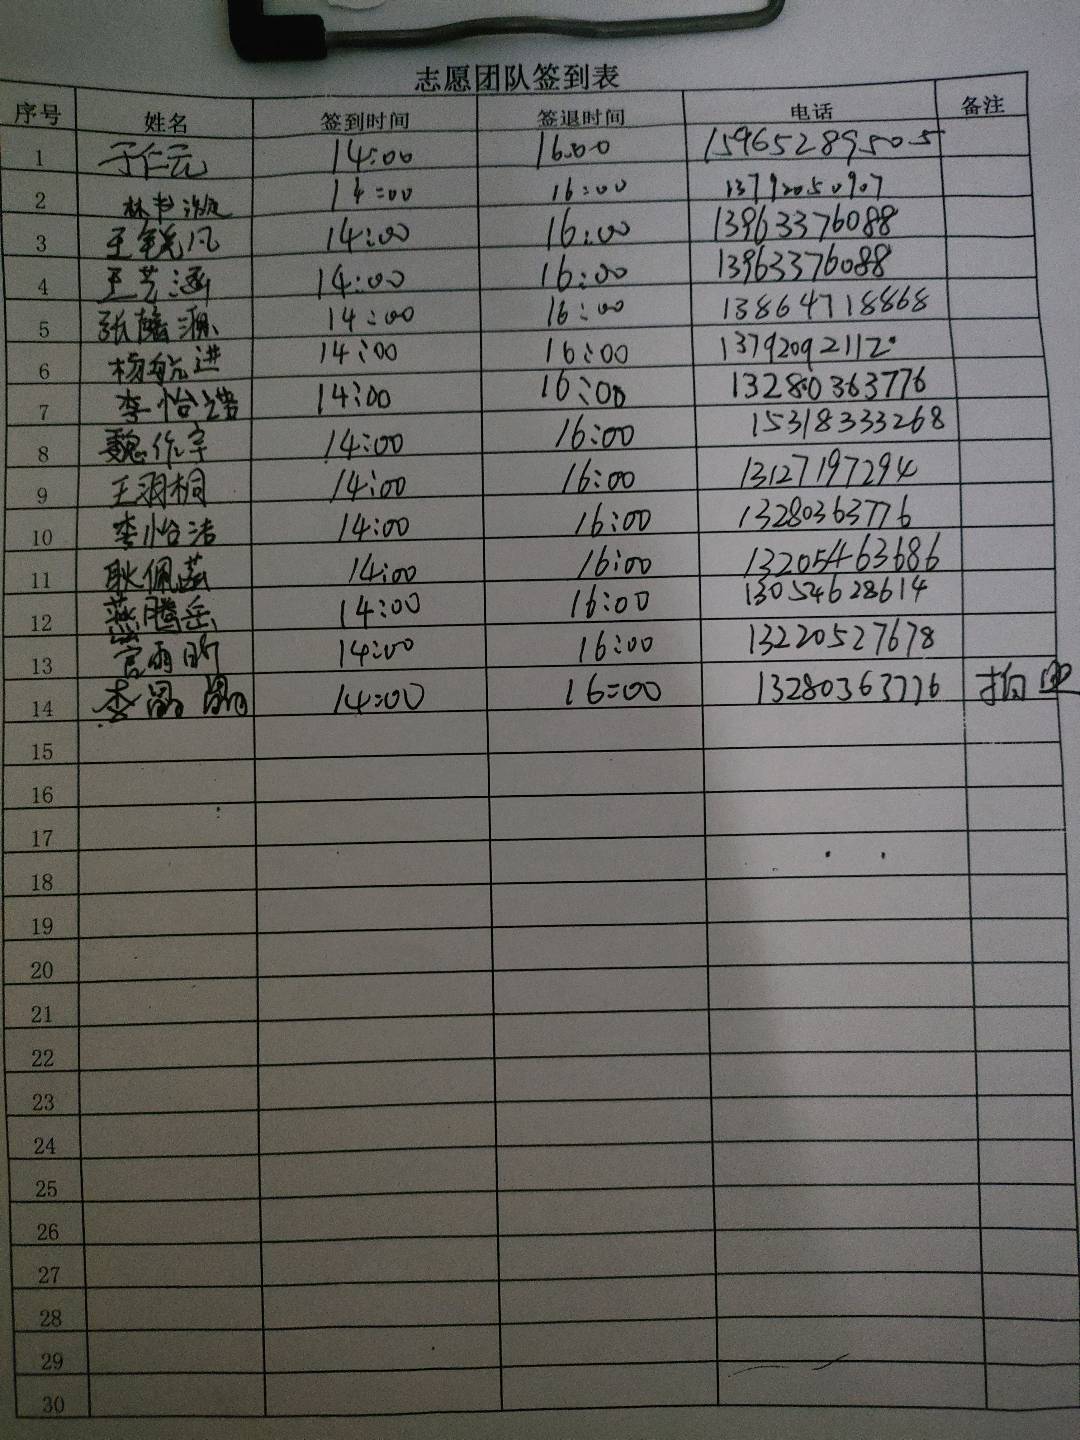 志愿团队签到表
序号 姓名 签到时间 签退时间 电话 备注
1 于仁元 14:00 16:00 15965289505
2 林书 14:00 16:00 13792050907
3 王锐凡 14:00 16:00 13963376088
4 王艺涵 14:00 16:00 13963376088
5 张 14:00 16:00 13864718868
6 杨航进 14:00 16:00 13792092112
7 李怡浩 14:00 16:00 13280363776
8 魏作宇 14:00 16:00 15318333268
9 王羽桐 14:00 16:00 13127197294
10 李怡洁 14:00 16:00 13280363776
11 耿佩 14:00 16:00 13205463686
12 燕腾岳 14:00 16:00 13054628614
13 宫雨昕 14:00 16:00 13220527678
14 李 14:00 16:00 13280363776 拍照
15
16
17
18
19
20
21
22
23
24
25
26
27
28
29
30